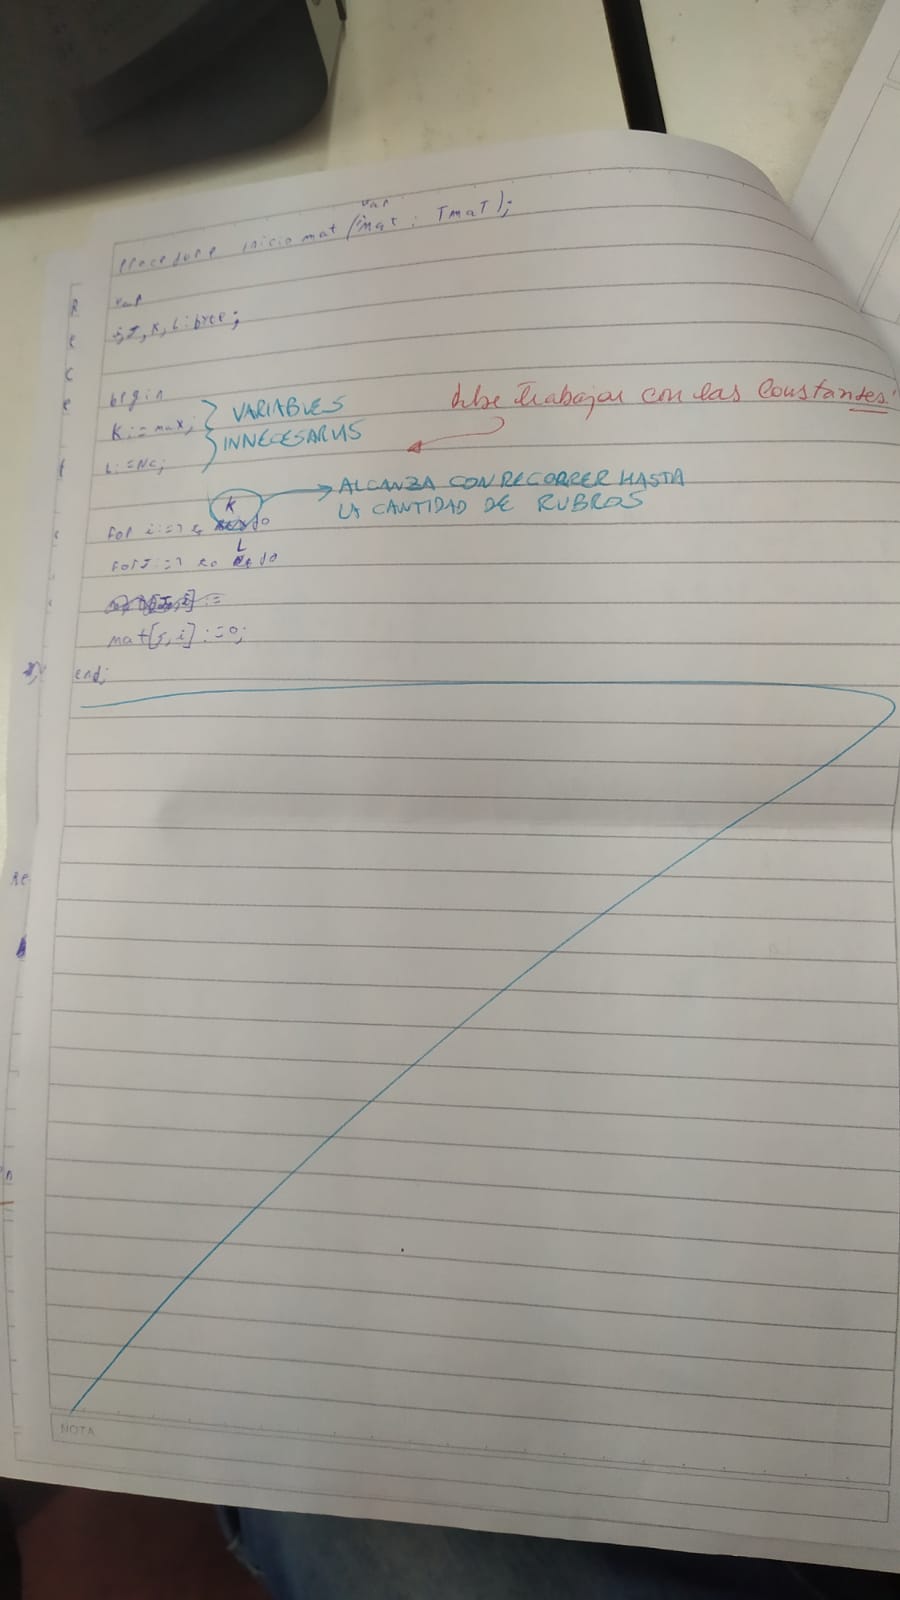 var
Procedure iniciomat (mat : Tmat);
var
i,J,K,L:byte;
begin
K:=max;
VARIABLES
INNECESARIAS
debe trabajar con las constantes!
L:=Nc;
ALCANZA CON RECORRER HASTA
LA CANTIDAD DE RUBROS
K
for i:=1 to do
L
for J:=1 to do
mat[J,i]:=0;
end;
Re
NOTA